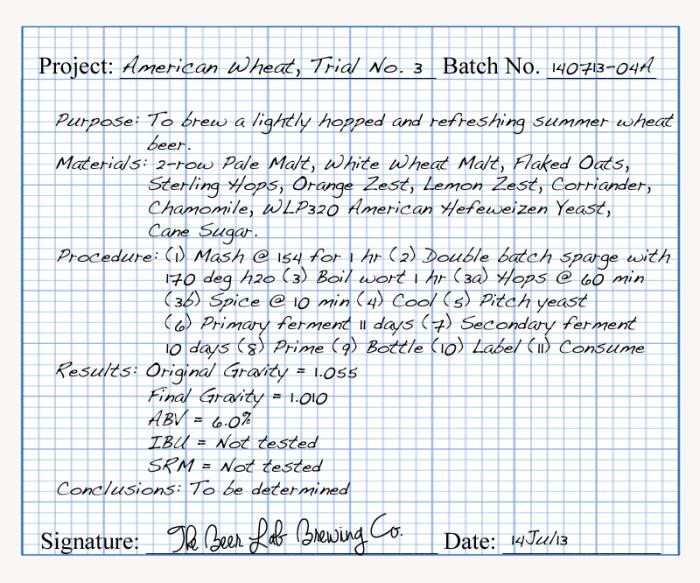 Project: American Wheat, Trial No. 3 Batch No. 140713-04A
Purpose: To brew a lightly hopped and refreshing summer wheat
beer.
Materials: 2-row Pale Malt, White Wheat Malt, Flaked Oats,
Sterling Hops, Orange Zest, Lemon Zest, Corriander,
Chamomile, WLP320 American Hefeweizen Yeast,
Cane Sugar.
Procedure: (1) Mash @ 154 for 1 hr (2) Double batch sparge with
170 deg h2o (3) Boil wort 1 hr (3a) Hops @ 60 min
(3b) Spice @ 10 min (4) Cool (5) Pitch yeast
(6) Primary ferment 11 days (7) Secondary ferment
10 days (8) Prime (9) Bottle (10) Label (11) Consume
Results: Original Gravity = 1.055
Final Gravity = 1.010
ABV = 6.0%
IBU = Not tested
SRM = Not tested
Conclusions: To be determined
Signature: The Beer Lab Brewing Co. Date: 14Jul13